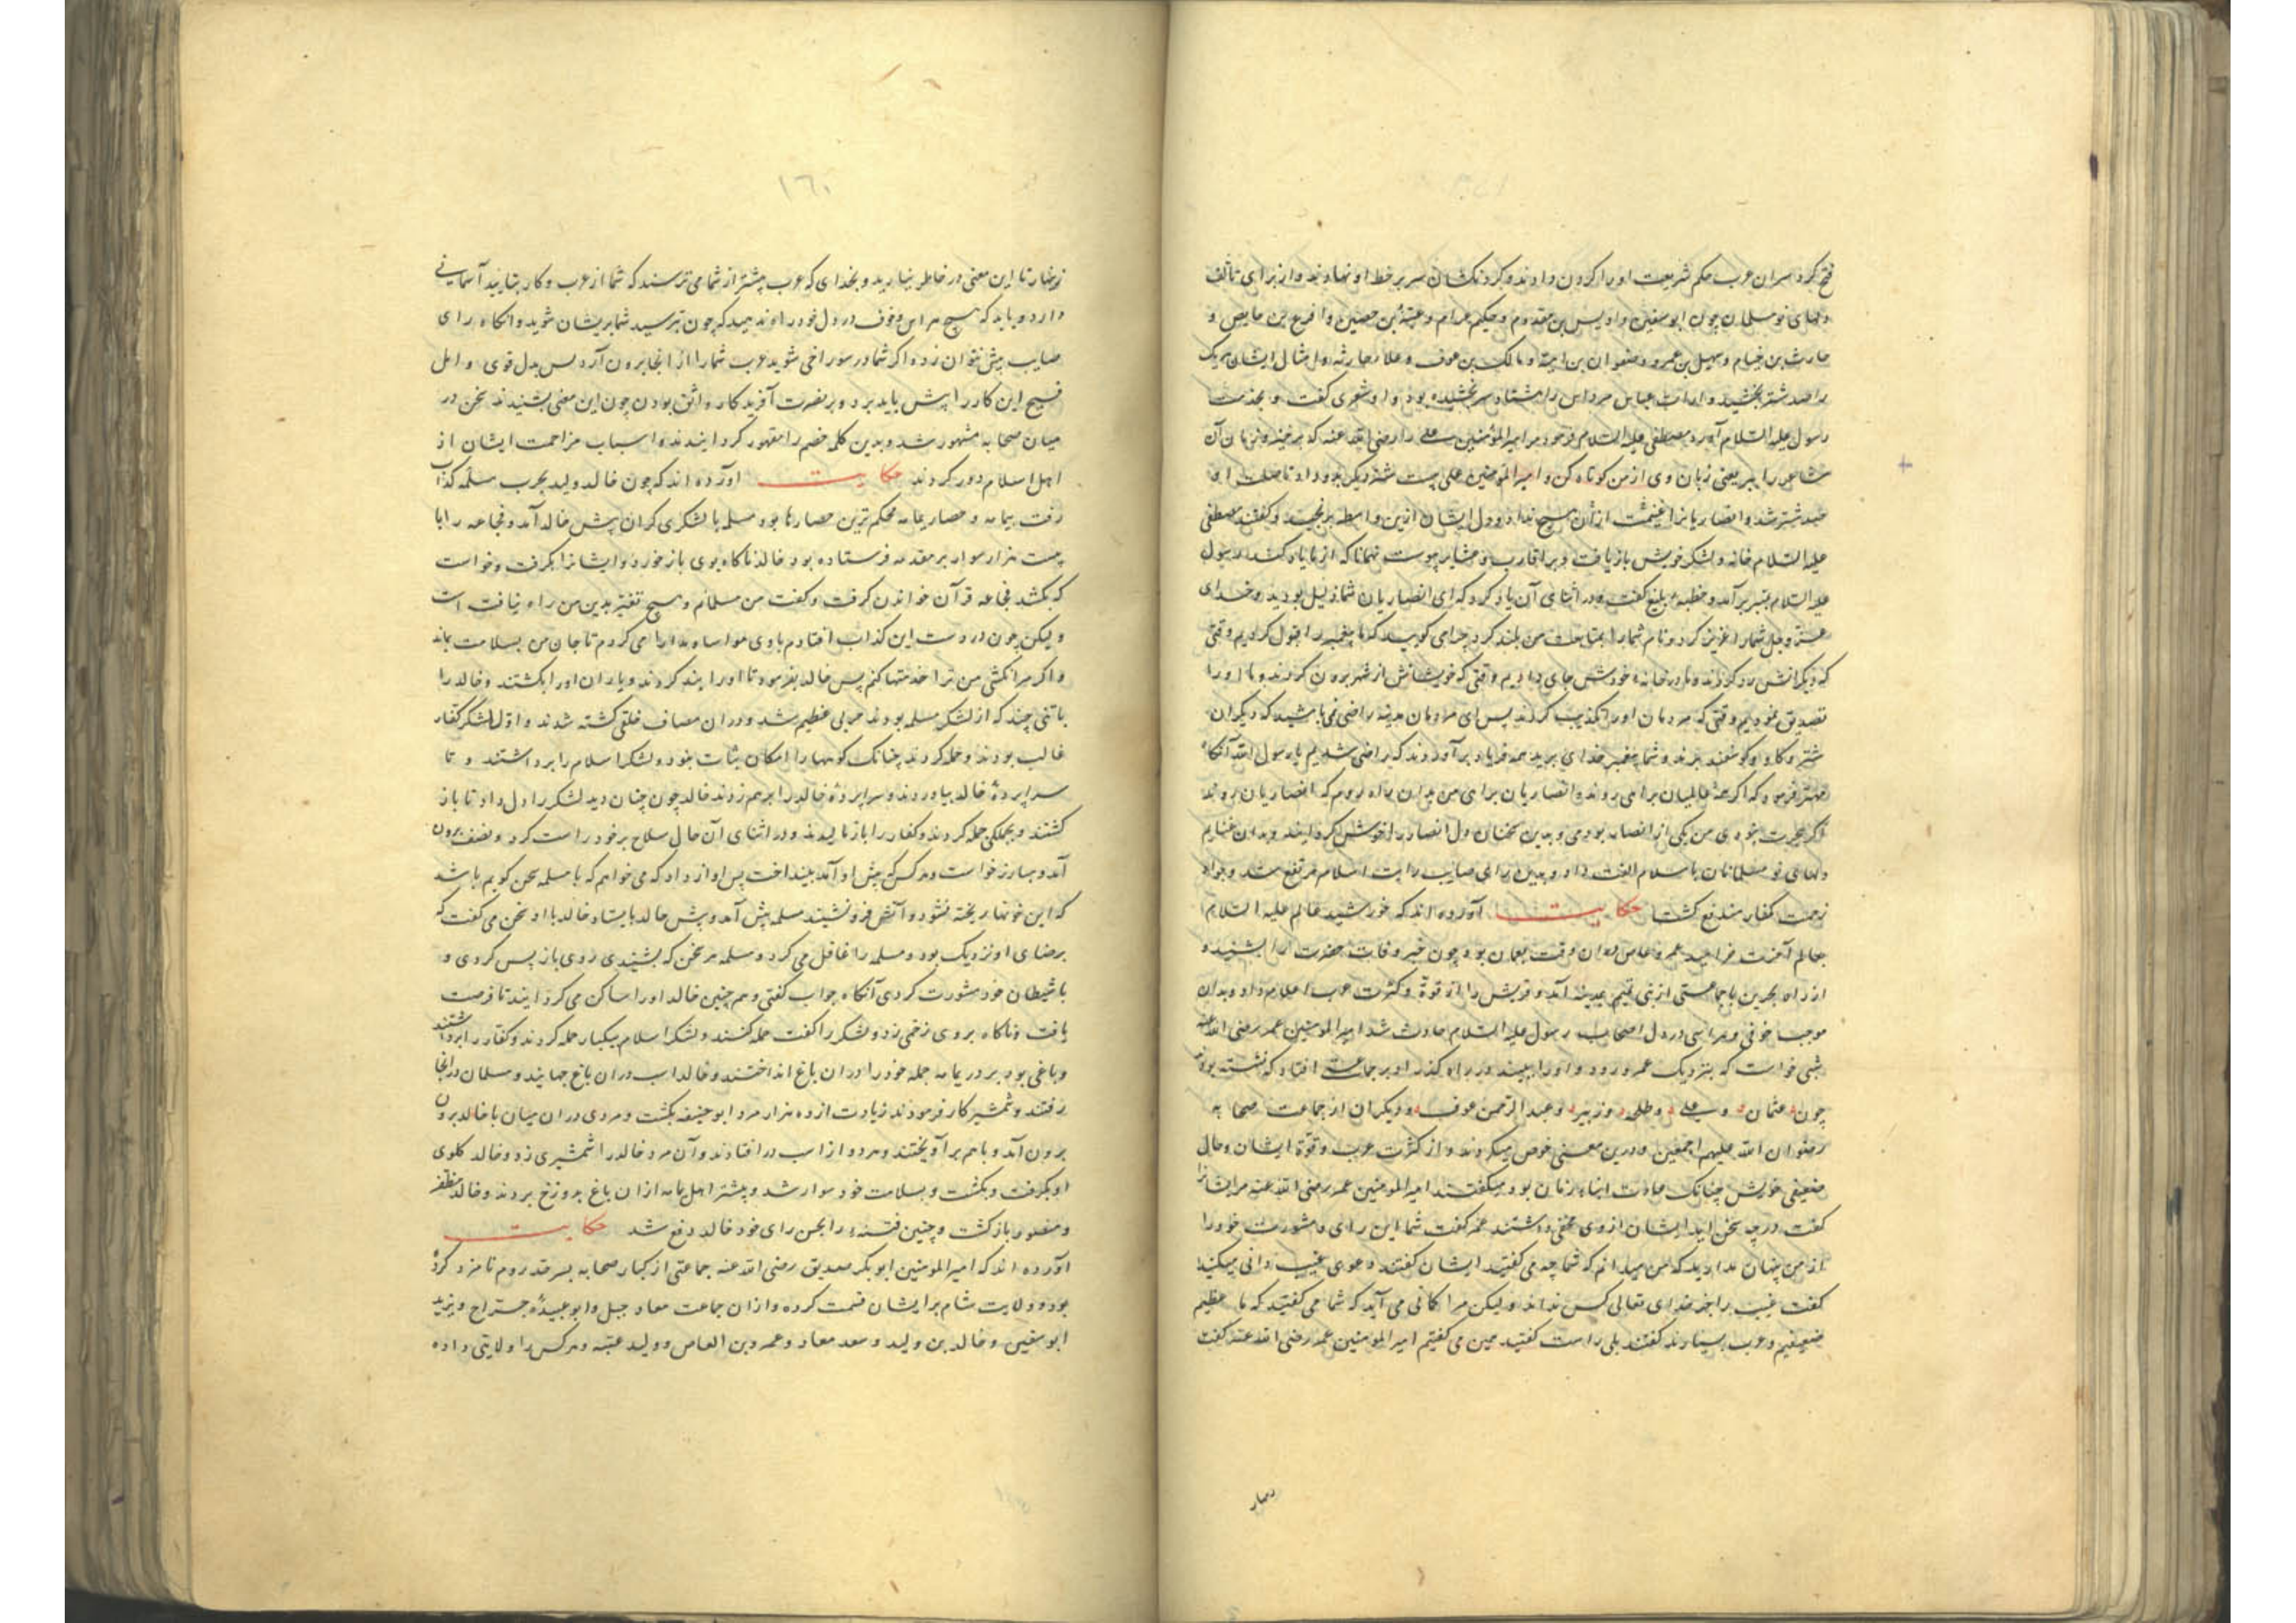 فتح کرد سران عرب حکم شریعت او را گردن دادند و گردنکشان سر بر خط او نهادند و از برای تألف
دلهای نو مسلمان چون ابو سفین و اویس بن مقدوم و حکیم حرام و عیینه بن حصین و اقرع بن حابس و
حارث بن هشام و سهیل بن عمرو و صفوان بن امیه و مالک بن عوف و علاء حارثه و امثال ایشان هر یک
را صد شتر بخشید و عباس مرداس را هشتاد سر بخشیده بود و او شعری گفت و بخدمت
رسول علیه السلام آورد مصطفی علیه السلام فرمود مر امیر المؤمنین علی را رضی الله عنه که برخیز و زبان آن
شاعر را ببر یعنی زبان وی از من کوتاه کن و امیر المومنین علی بیست شتر دیگر بدو داد تا جمله او
صد شتر شد و انصاریانرا از غنیمت از آن هیچ نداد و دل ایشان ازین واسطه برنجید و گفتند مصطفی
علیه السلام خانه و لشکر خویش باز یافت و بر اقارب و عشایر پیوست همانا که از ما یاد نکند رسول
علیه السلام بمنبر برآمد و خطبهٔ بلیغ گفت و در اثنای آن یاد کرد که ای انصاریان شما ذلیل بودید و خدای
عز و جل شما را عزیز کرد و نام شما را بمتابعت من بلند کرد چرا می گویید که ما پیغمبر را قبول کردیم وقتی
که دیگرانش رد کردند و ما در خانهٔ خودش جای دادیم وقتی که خویشانش از شهر برون کردند و ما او را
تصدیق نمودیم وقتی که مردمان او را تکذیب کردند پس ای مردمان مدینه راضی نمی باشید که دیگران
شتر و گاو و گوسفند برند و شما پیغمبر خدای برید همه فریاد برآوردند که راضی شدیم یا رسول الله آنگاه
مهتر فرمود که اگر همهٔ عالمیان براهی روند و انصاریان براهی من بدان راه روم که انصاریان روند
اگر هجرت نبودی من یکی از انصار بودمی و بدین سخنان دل انصار را خوش گردانید و بدان غنایم
دلهای نو مسلمانان با اسلام الفت داد و بدین رای صایب رایت اسلام مرتفع شد و مواد
زحمت کفار مندفع گشت حکایت آورده اند که خورشید عالم علیه السلام
بعالم آخرت خرامید عمرو عاص دران وقت بعمان بود چون خبر وفات حضرت را بشنید و
از راه بحرین با جماعتی از بنی تمیم بمدینه آمد و قریش را از قوة و کثرت عرب اعلام داد و بدان
موجب خوفی و هراسی در دل اصحاب رسول علیه السلام حادث شد امیر المومنین عمر رضی الله عنه
شبی خواست که بنزدیک عمرو رود و او را ببیند در راه گذر او بر جماعتی افتاد که نشسته بودند
چون عثمان و علی و طلحه و زبیر و عبد الرحمن عوف و دیگران از جماعت صحابه
رضوان الله علیهم اجمعین و درین معنی خوض میکردند و از کثرت عرب و قوة ایشان و حال
ضعیفی خویش چنانک عادت ابناء زمان بود میگفتند امیر المومنین عمر رضی الله عنه مر ایشانرا
گفت در چه سخن اید ایشان از وی مخفی داشتند عمر گفت شما این رای و مشورت خود را
از من پنهان مدارید که من میدانم که شما چه می گفتید ایشان گفتند دعوی غیب دانی میکنید
گفت غیب را جز خدای تعالی کس نداند و لیکن مرا گمانی می آید که شما می گفتید که ما عظیم
ضعیفیم و عرب بسیارند گفتند بلی راست گفتید همین می گفتیم امیر المومنین عمر رضی الله عنه گفت
١٦٠
زینهار تا این معنی در خاطر نیارید و بخدای که عرب پیشتر از شما می ترسند که شما از عرب و کار شما نه آسمانی
دارد و باید که هیچ هراس و خوف در دل خود راه ندهید که چون بترسید شما پریشان شوید و آنگاه رای
صایب پیش نتوان زد و اگر شما در سوراخی شوید عرب شما را از آنجا برون آرد پس بدل قوی و امل
فسیح این کار را پیش باید برد و بر نصرت آفریدگار واثق بودن چون این معنی بشنیدند سخن در
میان صحابه مشهور شد و بدین کلمه خصم را مقهور گردانیدند و اسباب مزاحمت ایشان از
اهل اسلام دور کردند حکایت آورده اند که چون خالد ولید بحرب مسلمه کذاب
رفت بیمامه و حصار یمامه محکم ترین حصارها بود مسلمه با لشکری گران پیش خالد آمد و مجاعه را با
بیست هزار سوار بر مقدمه فرستاده بود خالد ناگاه بوی باز خورد و ایشانرا بگرفت و خواست
که بکشد مجاعه قرآن خواندن گرفت و گفت من مسلمانم و هیچ تغیر بدین من راه نیافت است
و لیکن چون در دست این کذاب افتادم با وی مواسا و مدارا می کردم تا جان من بسلامت بماند
و اگر مرا نکشی من ترا خدمتها کنم پس خالد بفرمود تا او را بند کردند و یاران او را بکشتند و خالد را
با تنی چند که از لشکر مسلمه بودند حربی عظیم شد و دران مصاف خلقی کشته شدند و اول لشکر کفار
غالب بودند و حمله کردند چنانک کوهها را امکان ثبات نبود و لشکر اسلام را برداشتند و تا
سراپردهٔ خالد بیاوردند و سراپردهٔ خالد را برهم زدند خالد چون چنان دید لشکر را دل داد تا باز
گشتند و بجملگی حمله کردند و کفار را باز مالیدند و در اثنای آن حال سلاح بر خود راست کرد و بصف برون
آمد و مبارز خواست و هر کس که پیش او آمد بینداخت پس آواز داد که می خواهم که با مسلمه سخن گویم باشد
که این خونها ریخته نشود و آتش فرو نشیند مسلمه پیش آمد و پیش خالد بایستاد خالد با او سخن می گفت که
برضای او نزدیک بود و مسلمه را غافل می کرد و مسلمه هر سخن که بشنیدی روی باز پس کردی و
با شیطان خود مشورت کردی آنگاه جواب گفتی و هم چنین خالد او را ساکن می گردانید تا فرصت
یافت و ناگاه بر وی زخمی زد و لشکر را گفت حمله کنند و لشکر اسلام بیکبار حمله کردند و کفار را برداشتند
و باغی بود بر در یمامه جمله خود را دران باغ انداختند و خالد اسب دران باغ جهانید و مسلمانان در آنجا
رفتند و شمشیر کار فرمودند زیادت از ده هزار مرد ابو حنیفه بکشت و مردی دران میان با خالد برون
برون آمد و باهم برآویختند و هر دو از اسب در افتادند و آن مرد خالد را شمشیری زد و خالد گلوی
او بگرفت و بکشت و بسلامت خود سوار شد و بیشتر اهل یمامه ازان باغ بدوزخ بردند و خالد مظفر
و منصور بازگشت و چنین فتنهٔ را بحسن رای خود خالد دفع شد حکایت
آورده اند که امیر المومنین ابو بکر صدیق رضی الله عنه جماعتی از کبار صحابه بسرحد روم نامزد کرده
بود و ولایت شام بر ایشان قسمت کرده و ازان جماعت معاد جبل و ابو عبیده جراح و یزید
ابو سفین و خالد بن ولید و سعد معاد و عمرو بن العاص و ولید عتبه و هر کس را ولایتی داده